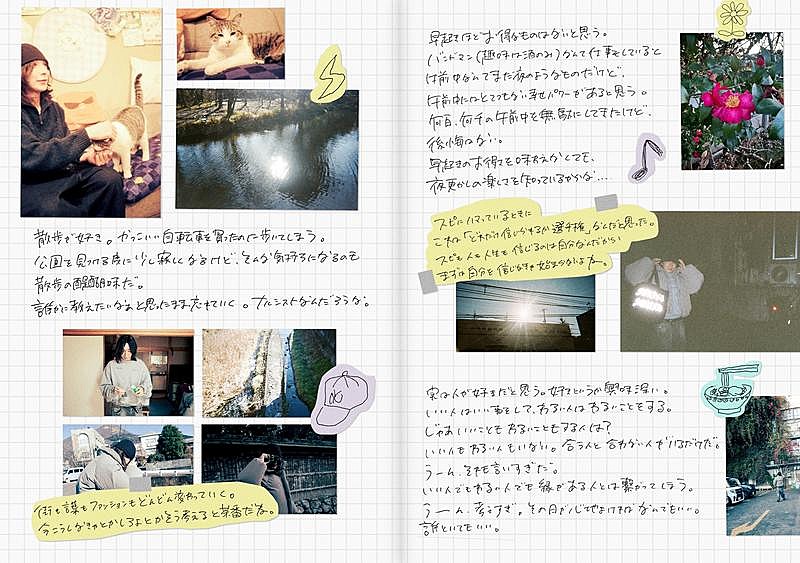 散歩が好き。かっこいい自転車を買ったのに歩いてしまう。
公園を見つける度に少し寂しくなるけど、そんな気持ちになるのも
散歩の醍醐味だ。
誰かに教えたいなぁと思ったまま忘れていく。ナルシストなんだろうな。
街も謎もファッションもどんどん変わっていく。
今こうしなきゃとかしろよとかそう考えると茶番だな。
早起きほどお得なものはないと思う。
バンドマン(趣味は酒のみ)なんて仕事をしていると
午前中なんてまだ夜のようなものだけど、
午前中にはとてつもない幸せパワーがあると思う。
何百、何千の午前中を無駄にしてきたけど、
後悔はない。
早起きのお得を味わえかしても、
夜更かしの楽しさを知っているからな…
スピにハマっているときに
これは「どれだけ信じれるか選手権」なんだと思った。
スピも人も人生も信じるのは自分なんだから
まずは自分を信じなきゃ始まらないよな。
実は人が好きだと思う。好きというか興味深い。
いい人はいい事をして、わるい人はわるいことをする。
じゃあいいこともわるいこともする人は?
いい人もわるい人もいない。合う人と合わない人がいるだけだ。
うーん、それも言いすぎだ。
いい人でもわるい人でも縁がある人とは繋がってしまう。
うーん、考えすぎ。その日が心地よければなんでもいい。
誰といてもいい。